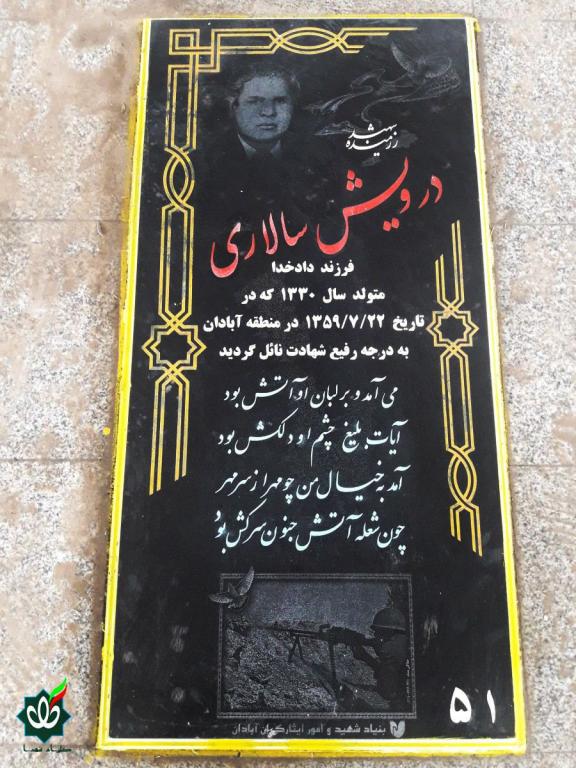 رزمنده شهید
درویش سالاری
فرزند دادخدا
متولد سال ۱۳۳۰ که در
تاریخ ۱۳۵۹/۷/۲۲ در منطقه آبادان
به درجه رفیع شهادت نائل گردید
می آمد و بر لبان او آتش بود
آیات بلیغ چشم او دلکش بود
آمد به خیال من چو مهر از سر مهر
چون شعله آتش جنون سرکش بود
۵۱
بنیاد شهید و امور ایثارگران آبادان